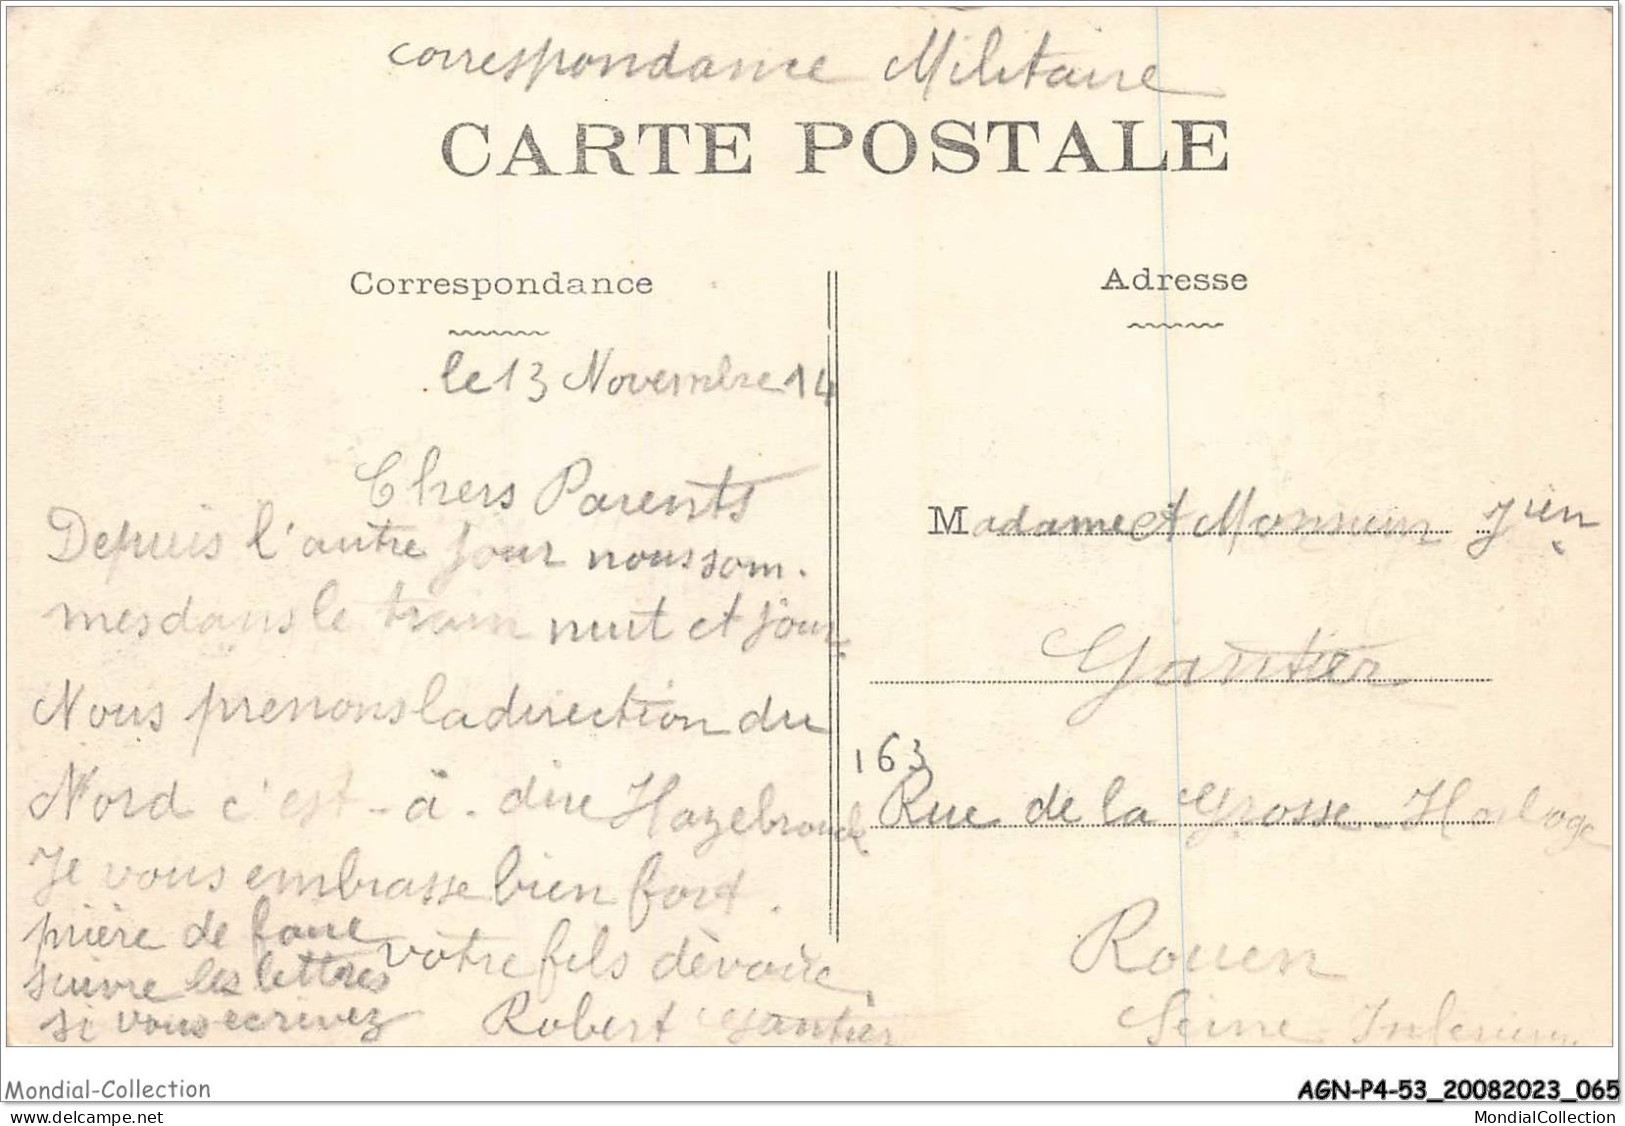 correspondance Militaire
CARTE POSTALE
Correspondance
le 13 Novembre 14
Chers Parents
Depuis l'autre jour nous som.
mes dans le train nuit et jour.
Nous prenons la direction du
Nord c'est-à-dire Hazebrouck
Je vous embrasse bien fort.
prière de faire
suivre les lettres
si vous ecrivez
votre fils dèvouè,
Robert Gautier
Adresse
Madame et Monsieur
Gautier
163
Rue de la Grosse-Horloge
Rouen
Seine Inferieure.
Mondial-Collection
AGN-P4-53_20082023_065
www.delcampe.net
MondialCollection